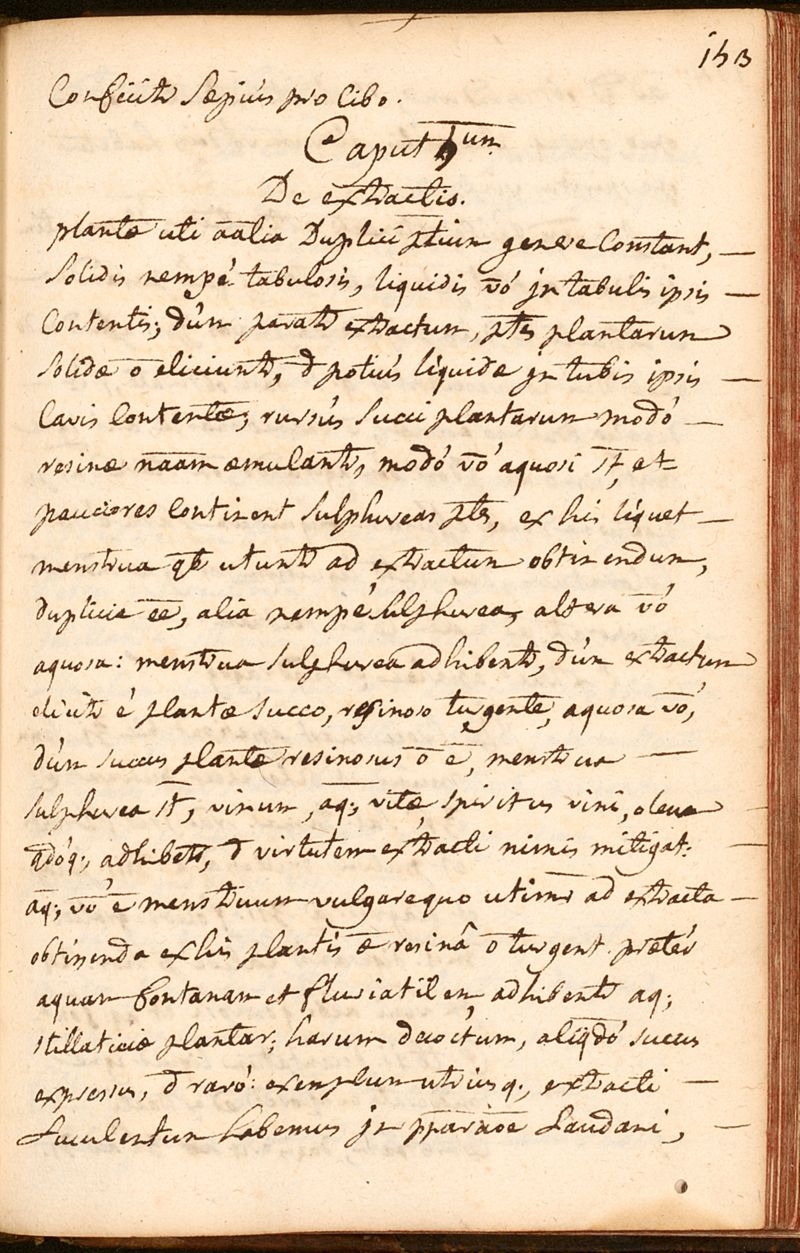 153
Conficitr Sæpiús pro Cibo.
Caput 5um
De extractis.
plantæ uti aãlia Duplici ptium genere Constant,
Solidis nempé tabulosis, liquidis vó jn tabulis ipsis
Contentis; dúm paratr extractum, ptes plantarum
Solidæ õ eliciuntr, d potiús liquidæ jn tubis ipsis
Cavis Contentæ; rursús Succi plantarum modó
resinæ nãam æmulantr, modó vó aquosi st, et
pauciores Continent Sulphureas ptes, ex his líquet
menstrua qb utuntr ad extractum obtinendum,
duplicia ēe, alia nempé Sulphurea, altera vó
aquosa: menstrua Sulphurea adhibentr, dúm extractum
elicitr é plantæ Succo, resinoso turgente, aquosa vó,
dúm succus plantæ resinosus õ ē, menstrua
Sulphurea st, vinum, aq; vitæ, spiritus vini, oleum
qdóq; adhibetr, d virtutem extracti nimis mitigat:
aq; vó ē menstruum vulgare quo utimr ad extracta
obtinenda ex his plantis æ resinâ õ turgent. præter
aquam fontanam et fluviatilem, adhibentr aq;
stillaticiæ plantar; harum decoctum, aliqdó succus
expressus, d raró: exemplum utriusq; extracti
Luculentum habemus jn pparãoe Laudani,